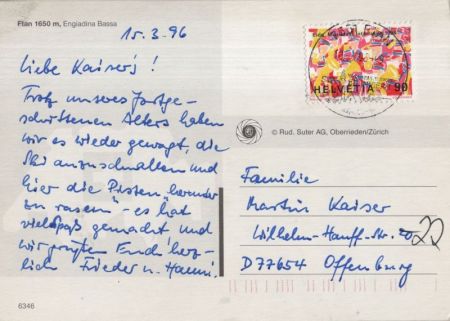 Ftan 1650 m, Engiadina Bassa
15.3.96
Liebe Kaiser's!
Trotz unseres fortge-
schrittenen Alters haben
wir es wieder gewagt, die
Ski anzuschnallen und
hier die Pisten "herunter
zu rasern" - es hat
viel Spaß gemacht und
wir grüßen Euch herz-
lich Frieder u. Hanni.
6346
HELVETIA 90
© Rud. Suter AG, Oberrieden/Zürich
Familie
Martin Kaiser
Wilhelm-Hauff-Str. 22
D77654 Offenburg